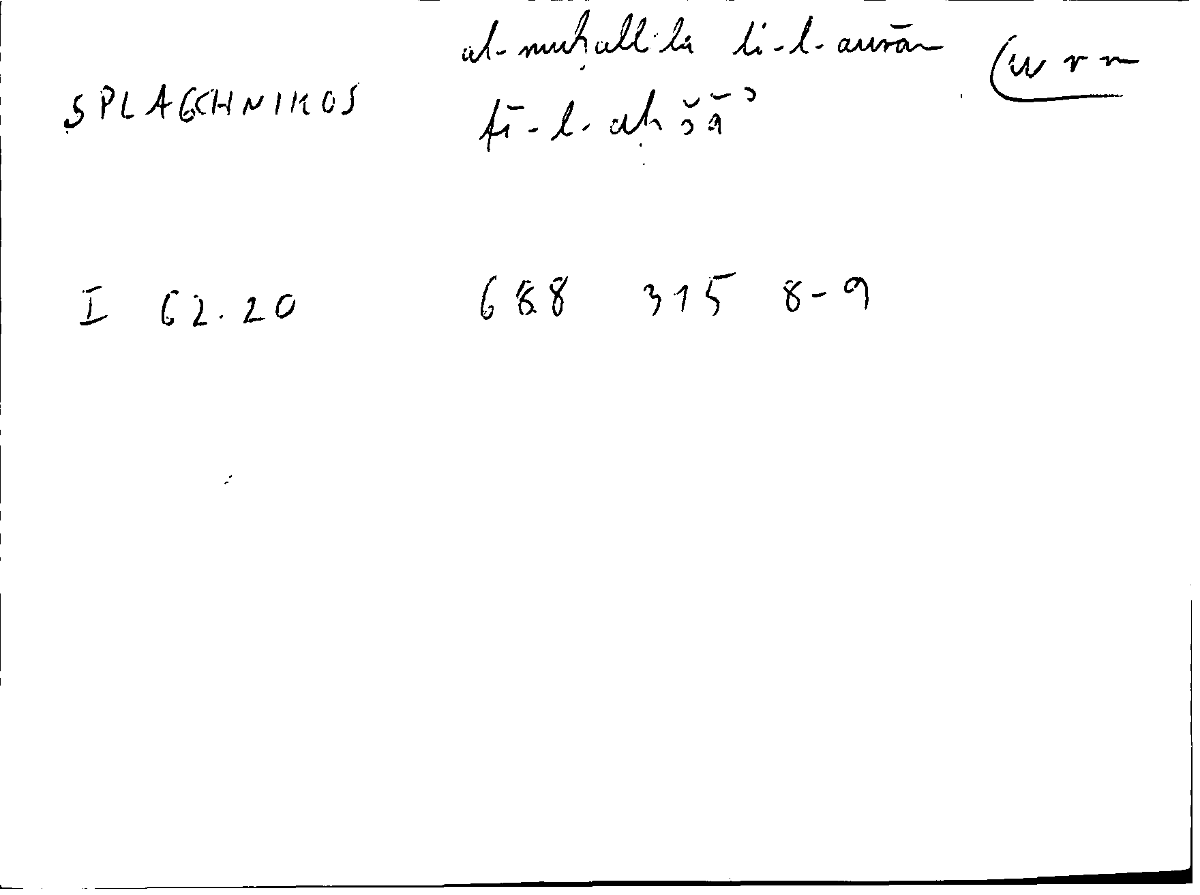 al-muḥallila li-l-aurām (w r m
SPLAGCHNIKOS
fī-l-aḥšāʾ
I 62.20 688 315 8-9